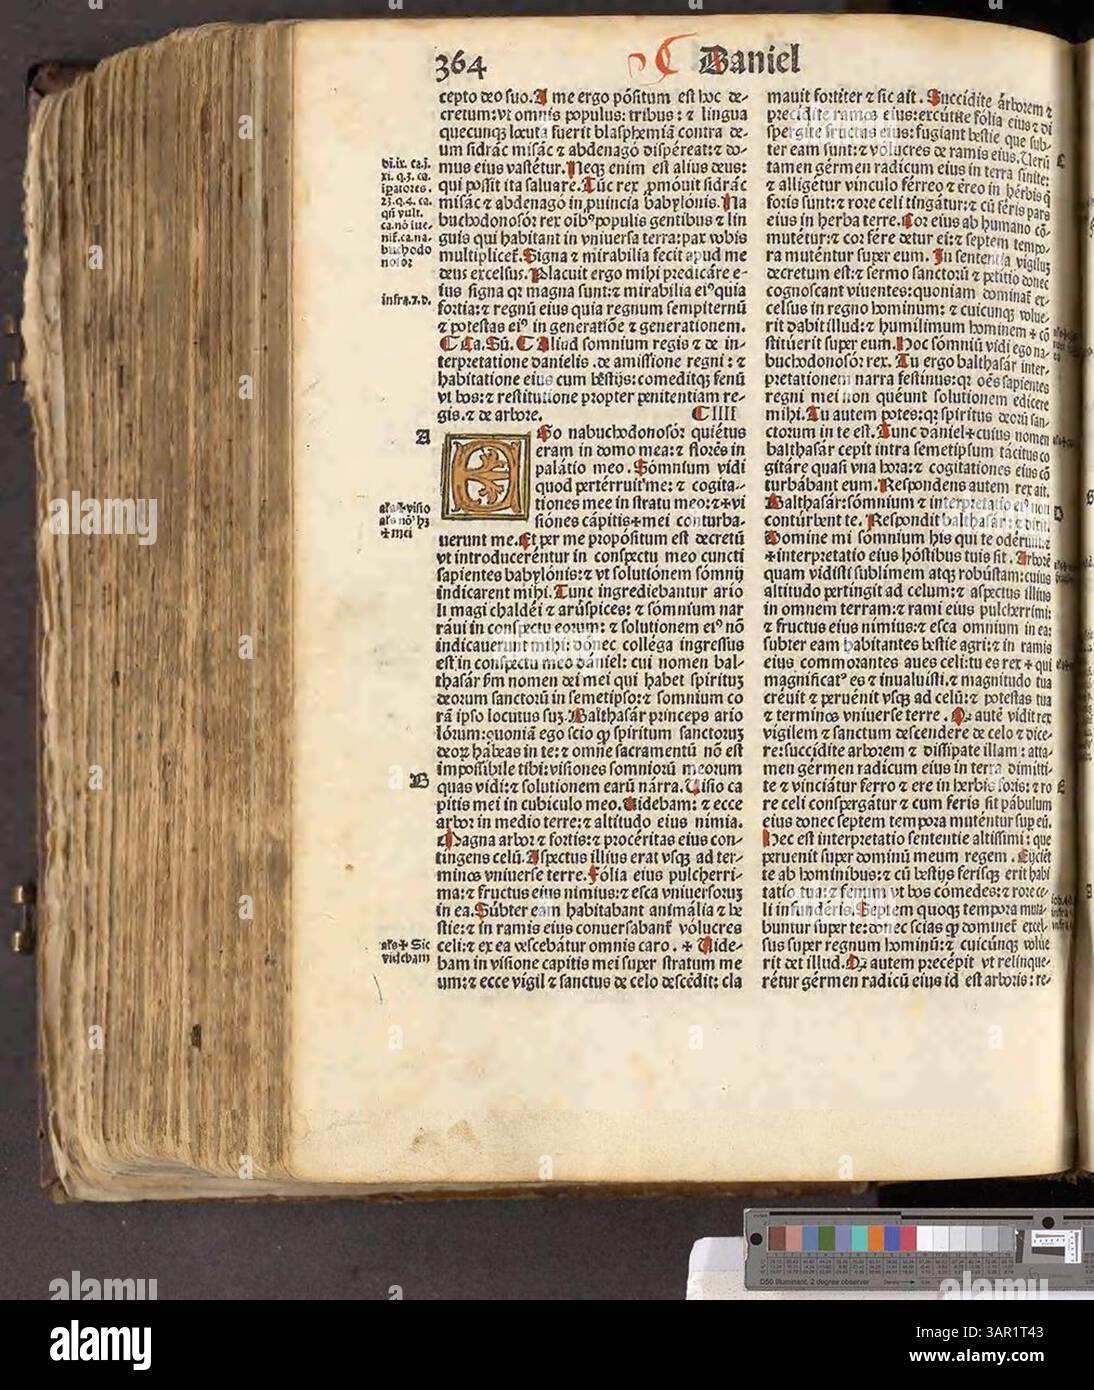 364
Daniel
cepto deo suo. A me ergo pósitum est hoc de-
cretum: vt omnis populus: tribus: ⁊ lingua
quecunqꝫ locuta fuerit blasphemiā contra de-
um sidrác misác ⁊ abdenagó dispéreat: ⁊ do-
mus eius vastétur. Neqꝫ enim est alius deus:
qui possit ita saluare. Tūc rex ꝓmóuit sidrác
misác ⁊ abdenagó in ꝓuincia babylónis. Na
buchodonosór rex oībꝰ populis gentibus ⁊ lin
guis qui habitant in vniuersa terra: pax vobis
multiplicet̄. Signa ⁊ mirabilia fecit apud me
deus excelsus. Placuit ergo mihi predicáre e-
ius signa qꝛ magna sunt: ⁊ mirabilia eiꝰ quia
fortia: ⁊ regnū eius quia regnum sempiternū
⁊ potestas eiꝰ in generatiōe ⁊ generationem.
¶ Ca. Sū. ¶ Aliud somnium regis ⁊ de in-
terpretatione danielis. de amissione regni: ⁊
habitatione eius cum bestijs: comeditqꝫ fenū
vt bos: ⁊ restitutione propter penitentiam re-
gis. ⁊ de arbore. ¶ IIII
A
EGo nabuchodonosór quiétus
eram in domo mea: ⁊ florés in
palátio meo. Sómnium vidi
quod pertérruit me: ⁊ cogita-
tiones mee in stratu meo: ⁊ + vi
siónes cápitis + mei conturba-
uerunt me. Et per me propósitum est decretū
vt introduceréntur in conspectu meo cuncti
sapientes babylónis: ⁊ vt solutiónem sómnij
indicarent mihi. Tunc ingrediebantur ario
li magi chaldéi ⁊ arúspices: ⁊ sómnium nar
ráui in conspectu eorum: ⁊ solutionem eiꝰ nō
indicauerunt mihi: donec colléga ingressus
est in conspectu meo dániel: cui nomen bal-
thasár ẜm nomen dei mei qui habet spiritus
deorum sanctorū in semetipso: ⁊ somnium co
rā ipso locutus sum. Balthasár princeps ario
lórum: quoniā ego scio ꝙ spiritum sanctoꝝ
deoꝝ hábeas in te: ⁊ omne sacramentū nō est
impossibile tibi: visiones somniorū meorum
quas vidi: ⁊ solutionem earū nárra. Uisio ca
pitis mei in cubiculo meo. Uidebam: ⁊ ecce
arbor in medio terre: ⁊ altitudo eius nimia.
Magna arbor ⁊ fortis: ⁊ procéritas eius con-
tingens celū. Aspectus illius erat vsqꝫ ad ter-
minos vniuerse terre. Fólia eius pulcherri-
ma: ⁊ fructus eius nimius: ⁊ esca vniuersoꝝ
in ea. Súbter eam habitabant animália ⁊ be
stie: ⁊ in ramis eius conuersabant̄ vólucres
celi: ⁊ ex ea vescebátur omnis caro. + Uide-
bam in visione capitis mei super stratum me
um: ⁊ ecce vigil ⁊ sanctus de celo descēdit: cla
di.ix. ca.j.
xi. q.3. ca.
ipatores.
23. q. 4. ca.
qui vult.
ca. nō iue-
nit̄. ca. na-
buchodo
nosor
infra. 7. d.
als + visio
als nō hꝫ
+ mei
B
als + Sic
videbam
mauit fortiter ⁊ sic ait. Succidite árborem ⁊
precidite ramos eius: excútite fólia eius ⁊ di
spergite fructus eius: fugiant bestie que sub-
ter eam sunt: ⁊ vólucres de ramis eius. Uerū
tamen gérmen radicum eius in terra sinite:
⁊ alligétur vinculo férreo ⁊ éreo in herbis q̄
foris sunt: ⁊ rore celi tingátur: ⁊ cū féris pars
eius in herba terre. Cor eius ab humano cō-
mutétur: ⁊ cor fére detur ei: ⁊ septem tempo-
ra muténtur super eum. In sententia vigilus
decretum est: ⁊ sermo sanctorū ⁊ petitio donec
cognoscant viuentes: quoniam dominat̄ ex-
celsus in regno hominum: ⁊ cuicunqꝫ volue-
rit dabit illud: ⁊ humilimum hominem + cō
stitúerit super eum. Hoc sómniū vidi ego na-
buchodonosór rex. Tu ergo balthasár inter-
pretationem narra festinus: qꝛ oēs sapientes
regni mei non quéunt solutionem edicere
mihi. Tu autem potes: qꝛ spiritus deorū san-
ctorum in te est. Tunc daniel + cuius nomen
balthasár cepit intra semetipsum tácitus co
gitáre quasi vna hora: ⁊ cogitationes eius cō
turbábant eum. Respondens autem rex ait.
Balthasár: sómnium ⁊ interpretatio eiꝰ non
contúrbent te. Respondit balthasár: ⁊ dixit.
Domine mi sómnium his qui te odérunt: ⁊
+ interpretatio eius hóstibus tuis sit. Arborē
quam vidisti sublimem atqꝫ robústam: cuius
altitudo pertingit ad celum: ⁊ aspectus illius
in omnem terram: ⁊ rami eius pulcherrimi:
⁊ fructus eius nimius: ⁊ esca omnium in ea:
subter eam habitantes bestie agri: ⁊ in ramis
eius commorantes aues celi: tu es rex + qui
magnificatꝰ es ⁊ inualuisti. ⁊ magnitudo tua
créuit ⁊ peruénit vsqꝫ ad celū: ⁊ potestas tua
⁊ terminos vniuerse terre. Qꝛ autē vidit rex
vigilem ⁊ sanctum descendere de celo ⁊ dice-
re: succidite arborem ⁊ dissipate illam: atta-
men gérmen radicum eius in terra dimitti-
te ⁊ vinciátur férro ⁊ ere in herbis foris: ⁊ ro
re celi conspergátur ⁊ cum feris sit pábulum
eius donec septem tempora muténtur sup eū.
Hec est interpretatio sententie altissimi: que
peruenit super dominū meum regem. Eijcičt
te ab hominibus: ⁊ cū bestijs ferisqꝫ erit habi
tatio tua: ⁊ fenum vt bos cómedes: ⁊ rore ce-
li infundéris. Septem quoqꝫ tempora muta-
buntur super te: donec scias ꝙ dominet̄ excel-
sus super regnum hominū: ⁊ cuicunqꝫ volue
rit det illud. Qꝛ autem precépit vt relinque-
rétur gérmen radicū eius id est arboris: re-
C
D
E
D50 Illuminant, 2 degree observer
alamy
Image ID: 3AR1T43
www.alamy.com